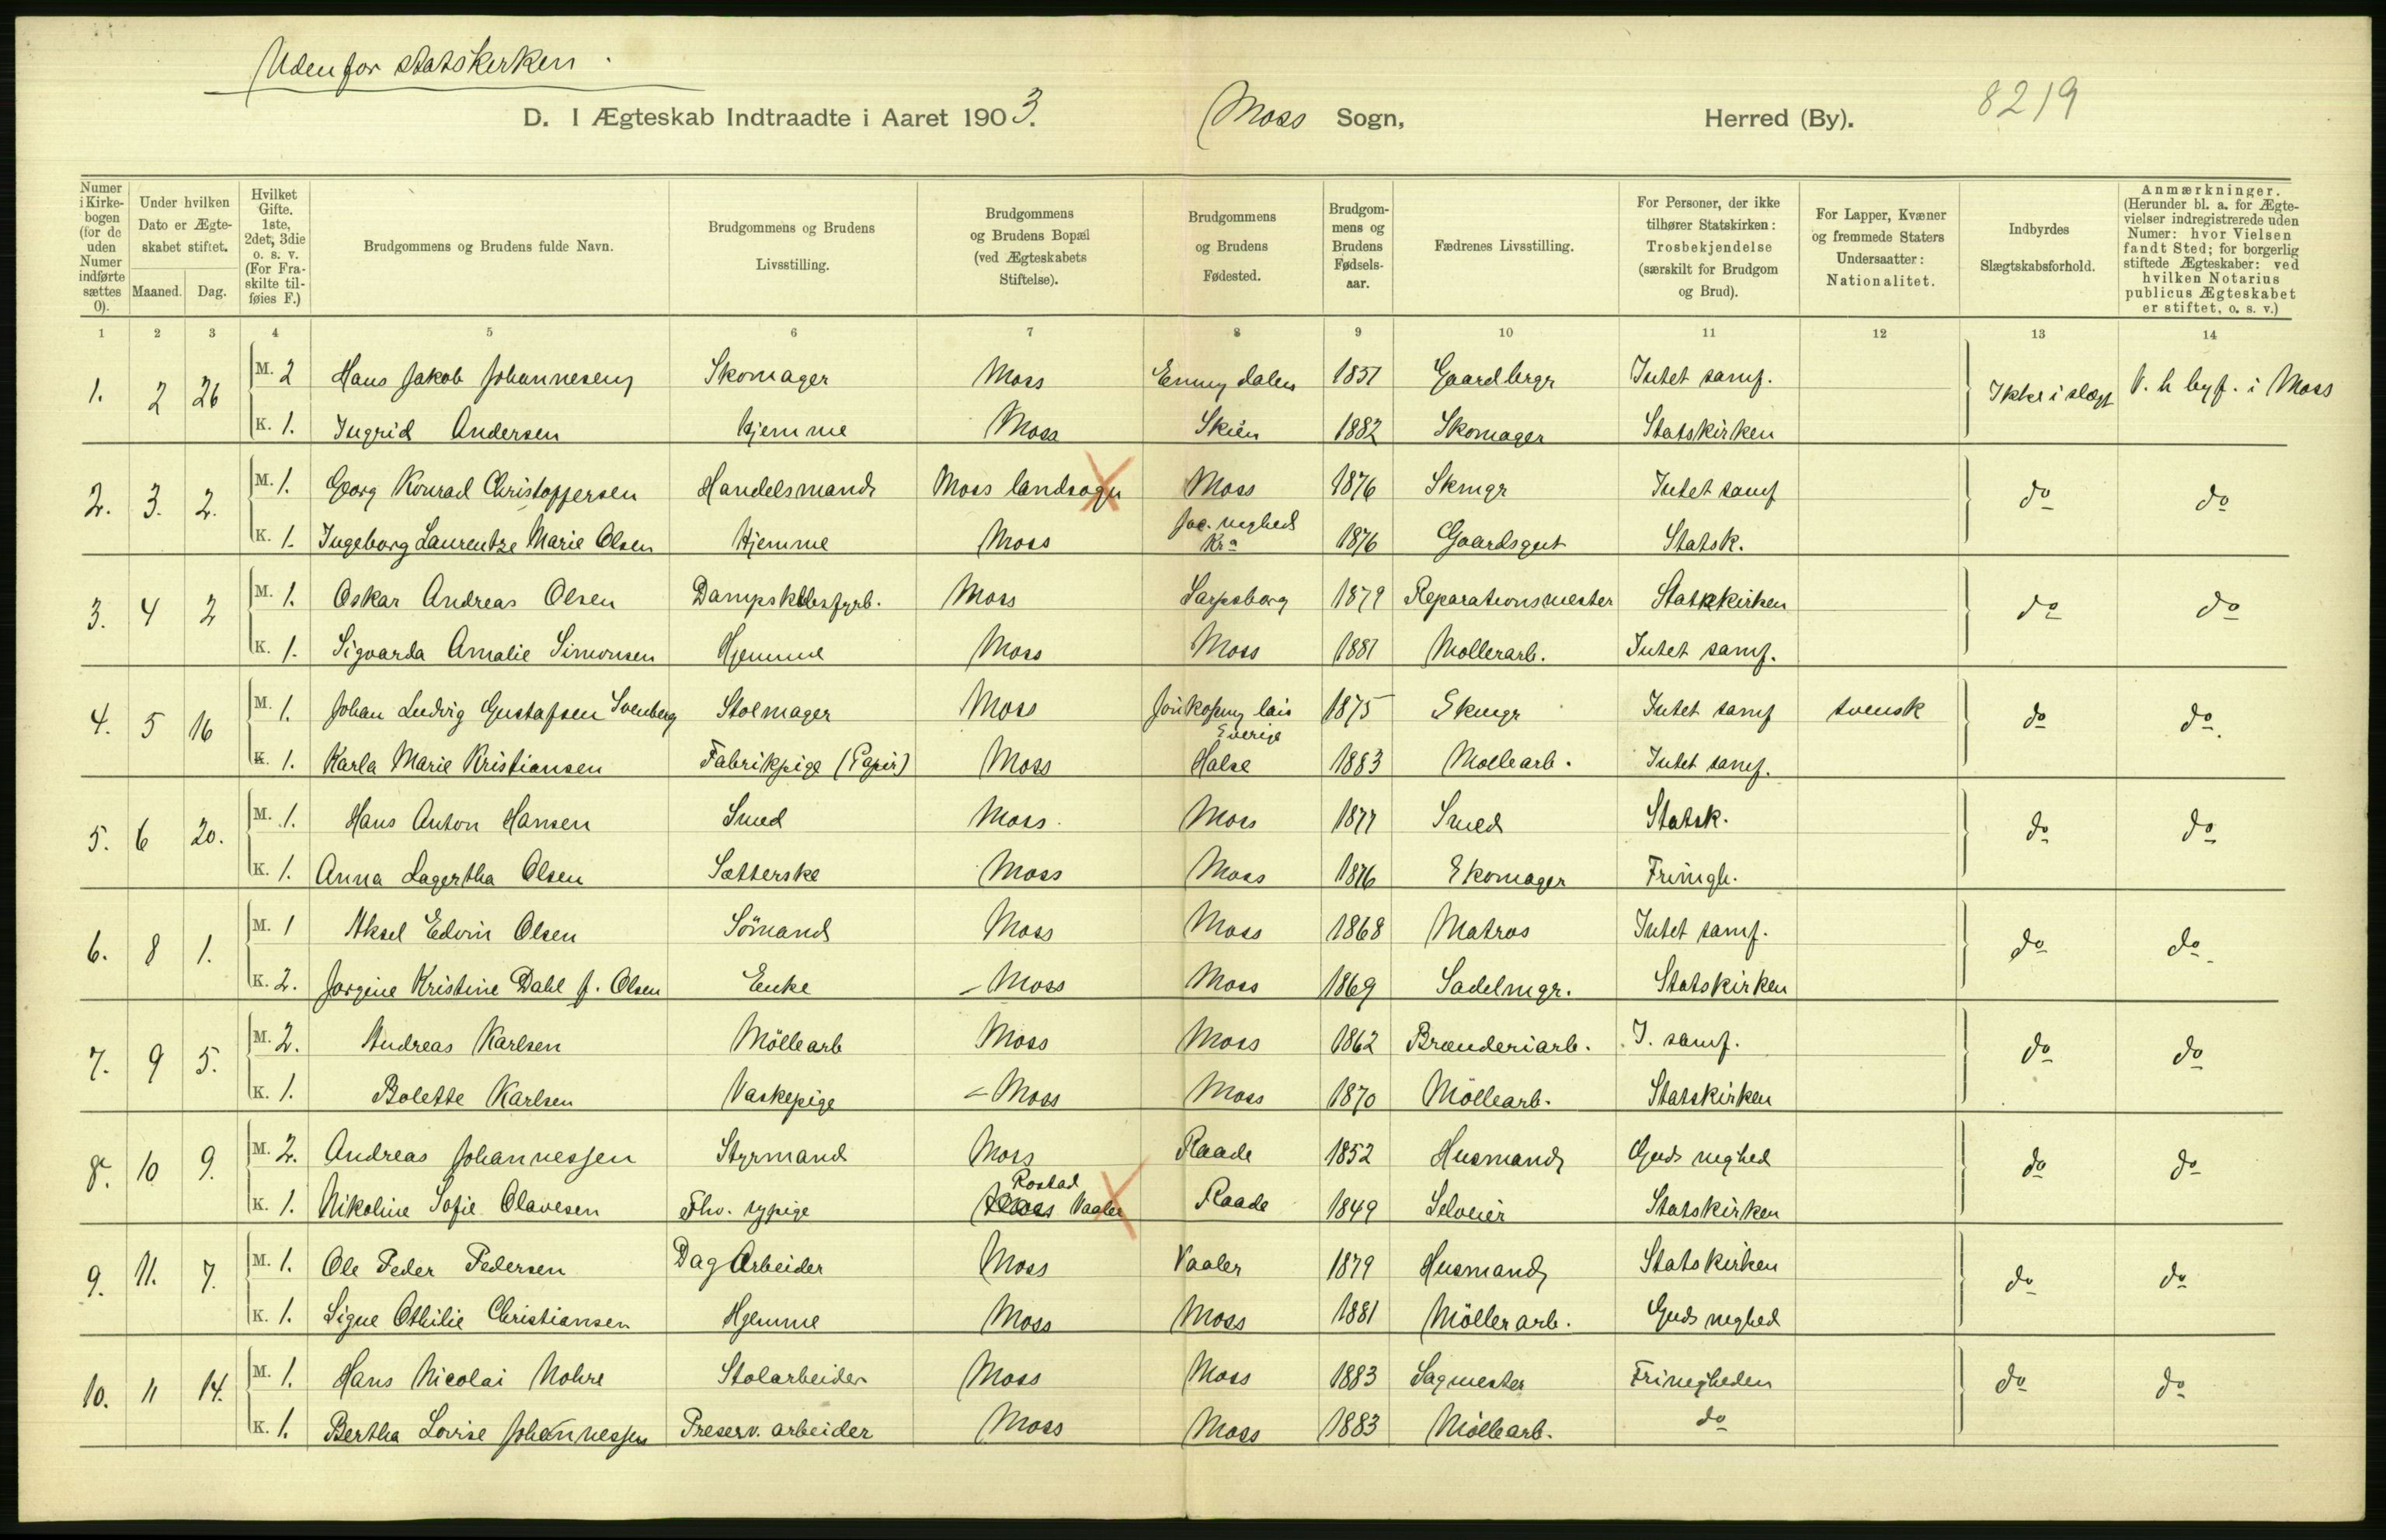 Udenfor statskirken.
D. I Ægteskab Indtraadte i Aaret 1903. Moss Sogn, Herred (By). 8219
Numer i Kirkebogen (for de uden Numer indførte sættes 0).
Under hvilken Dato er Ægteskabet stiftet.
Maaned. Dag.
Hvilket Gifte. 1ste, 2det, 3die o. s. v. (For Fraskilte tilføies F.)
Brudgommens og Brudens fulde Navn.
Brudgommens og Brudens Livsstilling.
Brudgommens og Brudens Bopæl (ved Ægteskabets Stiftelse).
Brudgommens og Brudens Fødested.
Brudgommens og Brudens Fødselsaar.
Fædrenes Livsstilling.
For Personer, der ikke tilhører Statskirken: Trosbekjendelse (særskilt for Brudgom og Brud).
For Lapper, Kvæner og fremmede Staters Undersaatter: Nationalitet.
Indbyrdes Slægtskabsforhold.
Anmærkninger. (Herunder bl. a. for Ægtevielser indregistrerede uden Numer: hvor Vielsen fandt Sted; for borgerlig stiftede Ægteskaber: ved hvilken Notarius publicus Ægteskabet er stiftet, o. s. v.)
1 2 3 4 5 6 7 8 9 10 11 12 13 14
1. 2 26 M. 2 Hans Jakob Johannesen Skomager Moss 1851 Intet samf. Ikke i slægt V. h byf. i Moss
K. 1. Ingrid Andersen Hjemme Moss Skien 1882 Skomager Statskirken
2. 3. 2. M. 1. Georg Konrad Christoffersen Handelsmand Moss landsogn Moss 1876 Skmgr Intet samf do do
K. 1. Ingeborg Laurentze Marie Olsen Hjemme Moss Kra 1876 Gaardsgut Statsk.
3. 4 2 M. 1. Oskar Andreas Olsen Moss Sarpsborg 1879 Reparationsmester Statskirken do do
K. 1. Sigvarda Amalie Simonsen Hjemme Moss Moss 1881 Møllerarb. Intet samf.
4. 5 16 M. 1. Johan Ludvig Gustafsen Svenberg Stolmager Moss Sverige 1875 Skmgr Intet samf svensk do do.
K. 1. Karla Marie Kristiansen Fabrikpige (Papir) Moss Halse 1883 Møllearb. Intet samf.
5. 6 20. M. 1. Hans Anton Hansen Smed Moss Moss 1877 Smed Statsk. do do
K. 1. Anna Lagertha Olsen Sætterske Moss Moss 1876 Skomager Frimgh.
6. 8 1. M. 1 Aksel Edvin Olsen Sömand Moss Moss 1868 Matros Intet samf. do do
K. 2. Jorgine Kristine Dahl f. Olsen Enke Moss Moss 1869 Sadelmgr. Statskirken
7. 9 5. M. 2. Andreas Karlsen Möllearb Moss Moss 1862 Brænderiarb. I. samf. do do
K. 1. Bolette Karlsen Vaskepige Moss Moss 1870 Möllearb. Statskirken
8. 10 9. M. 2. Andreas Johannessen Styrmand Moss Raade 1852 Husmand Guds meghed do do
K. 1. Nikoline Sofie Olavesen Fhv. sypige Rostad Vaaler Raade 1849 Selveier Statskirken
9. 11. 7. M. 1. Ole Peder Pedersen Dag Arbeider Moss Vaaler 1879 Husmand Statskirken do do
K. 1. Signe Othilie Christiansen Hjemme Moss Moss 1881 Möllerarb. Guds meghed
10. 11 14. M. 1. Hans Nicolai Nohre Stolarbeider Moss Moss 1883 Sagmester Frimegheden do do
K. 1. Bertha Lovise Johannessen Preserv. arbeider Moss Moss 1883 Möllearb. do